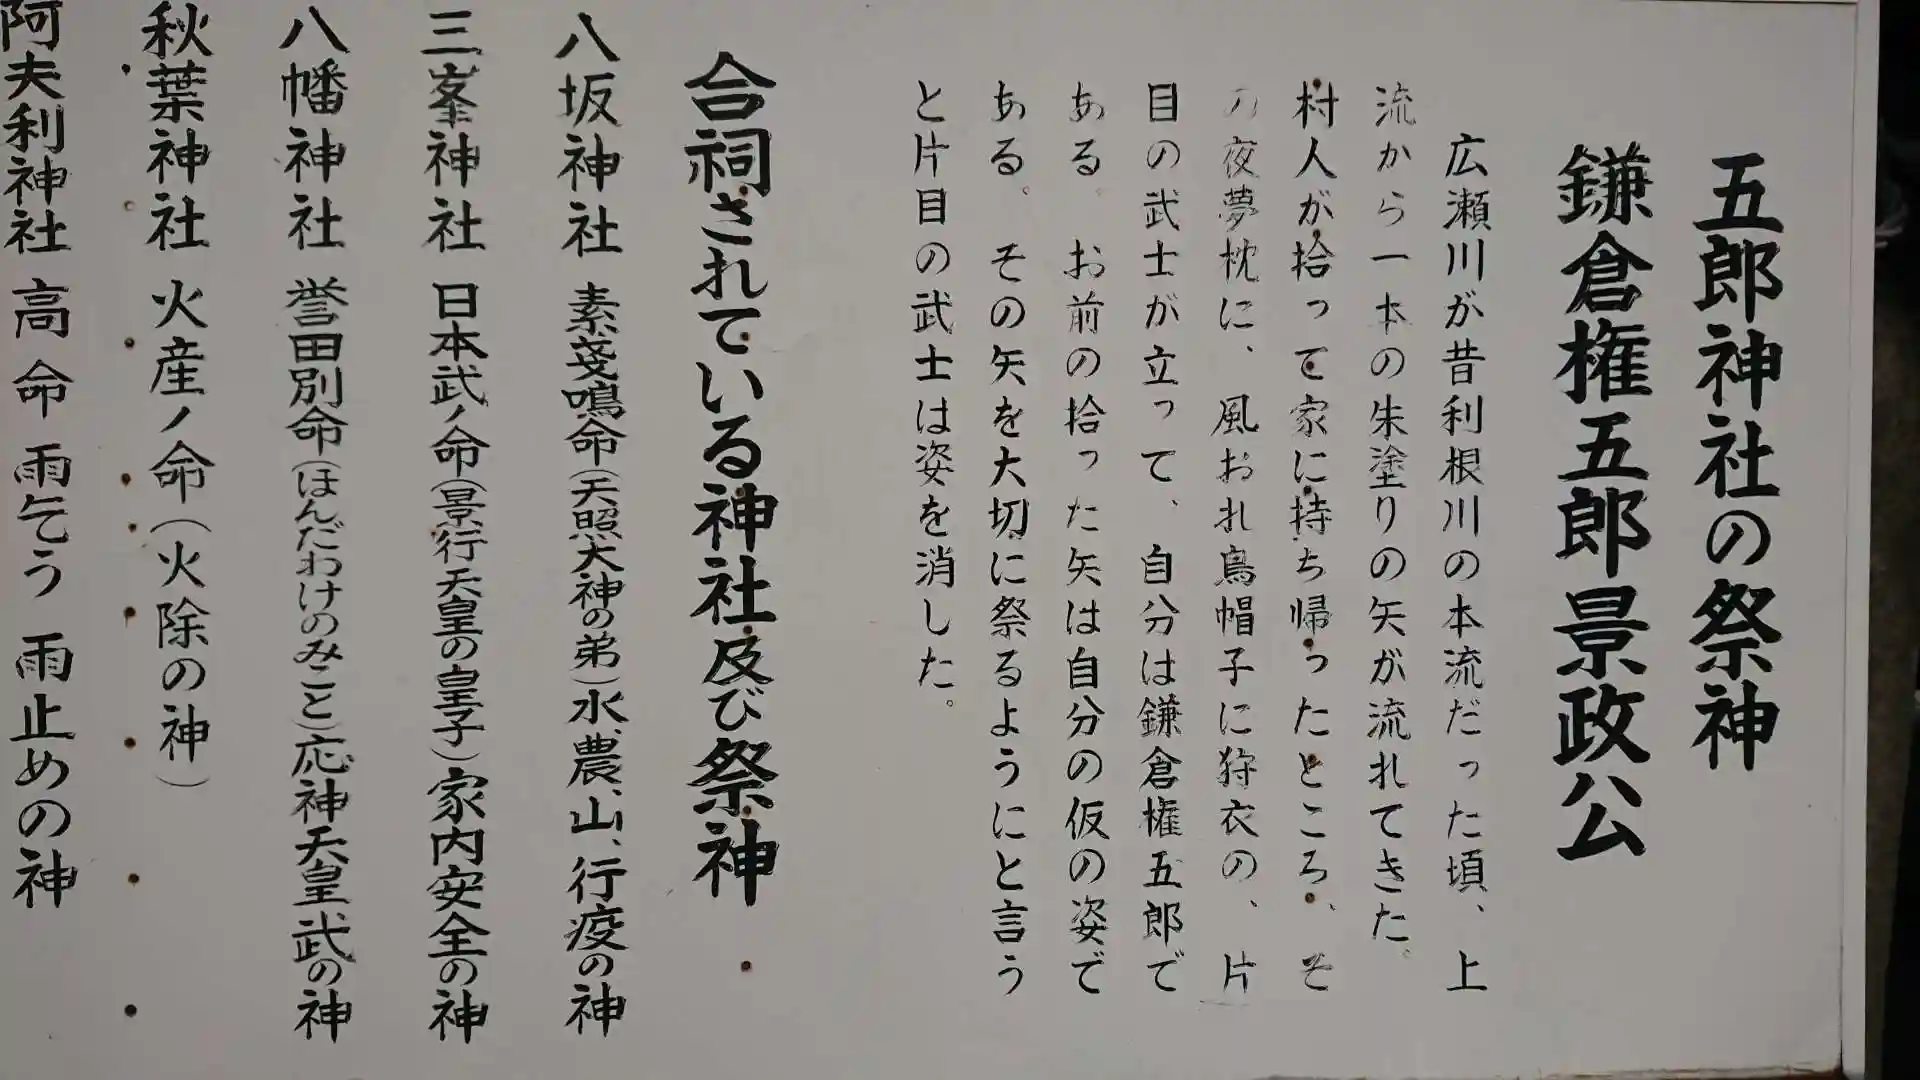 五郎神社の祭神
鎌倉権五郎景政公
広瀬川が昔利根川の本流だった頃、上
流から一本の朱塗りの矢が流れてきた。
村人が拾って家に持ち帰ったところ、そ
の夜夢枕に、風おれ烏帽子に狩衣の、片
目の武士が立って、自分は鎌倉権五郎で
ある。お前の拾った矢は自分の仮の姿で
ある。その矢を大切に祭るようにと言う
と片目の武士は姿を消した。
合祠されている神社及び祭神
八坂神社 素戔鳴命(天照大神の弟)水、農、山、行疫の神
三峯神社 日本武ノ命(景行天皇の皇子)家内安全の神
八幡神社 誉田別命(ほんだわけのみこと)応神天皇武の神
秋葉神社 火産ノ命(火除の神)
阿夫利神社 高命 雨乞う 雨止めの神